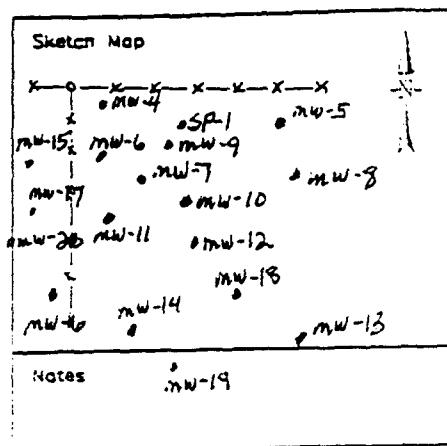 Sketch Map
MW-4
SP-1
MW-5
MW-15
MW-6
MW-9
MW-7
MW-8
MW-17
MW-10
MW-11
MW-12
MW-18
MW-14
MW-13
Notes
MW-19